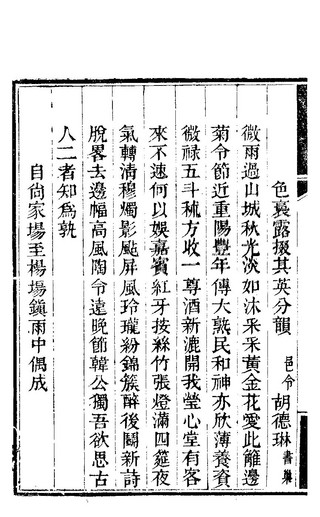 色裛露掇其英分韻　邑令胡德琳書巢
微雨過山城秋光淡如沐采采黃金花愛此籬邊
菊令節近重陽豐年傳大熟民和神亦欣薄養資
微祿五斗秫方收一尊酒新漉開我瑩心堂有客
來不速何以娛嘉賓紅牙按絲竹張燈滿四筵夜
氣轉清穆燭影颭屏風玲瓏紛錦簇醉後鬬新詩
脫畧去邊幅高風陶令遠晚節韓公獨吾欲思古
人二者知為孰
自尙家場至楊場鎮雨中偶成